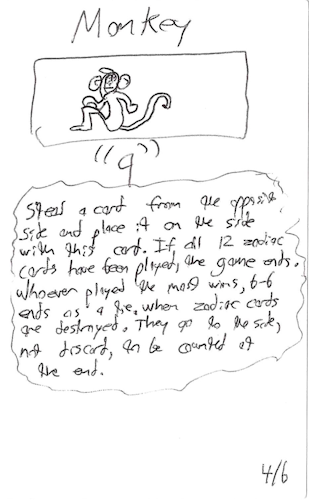 Monkey
"9"
Steal a card from the opposite
side and place it on the side
with this card. If all 12 zodiac
cards have been played, the game ends.
Whoever played the most wins, 6-6
ends as a tie. when zodiac cards
are destroyed. They go to the side,
not discard, to be counted at
the end.
4/6